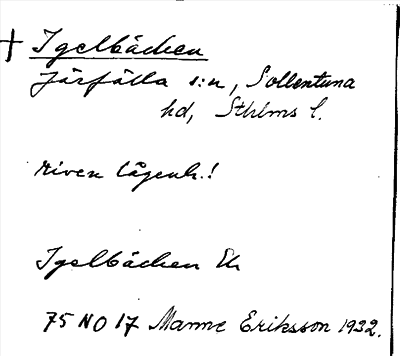 † Igelbäcken
Järfälla s:n, Sollentuna
hd, Sthlms l.
riven lägenh.!
Igelbäcken Ek
75 NO 17 Manne Eriksson 1932.